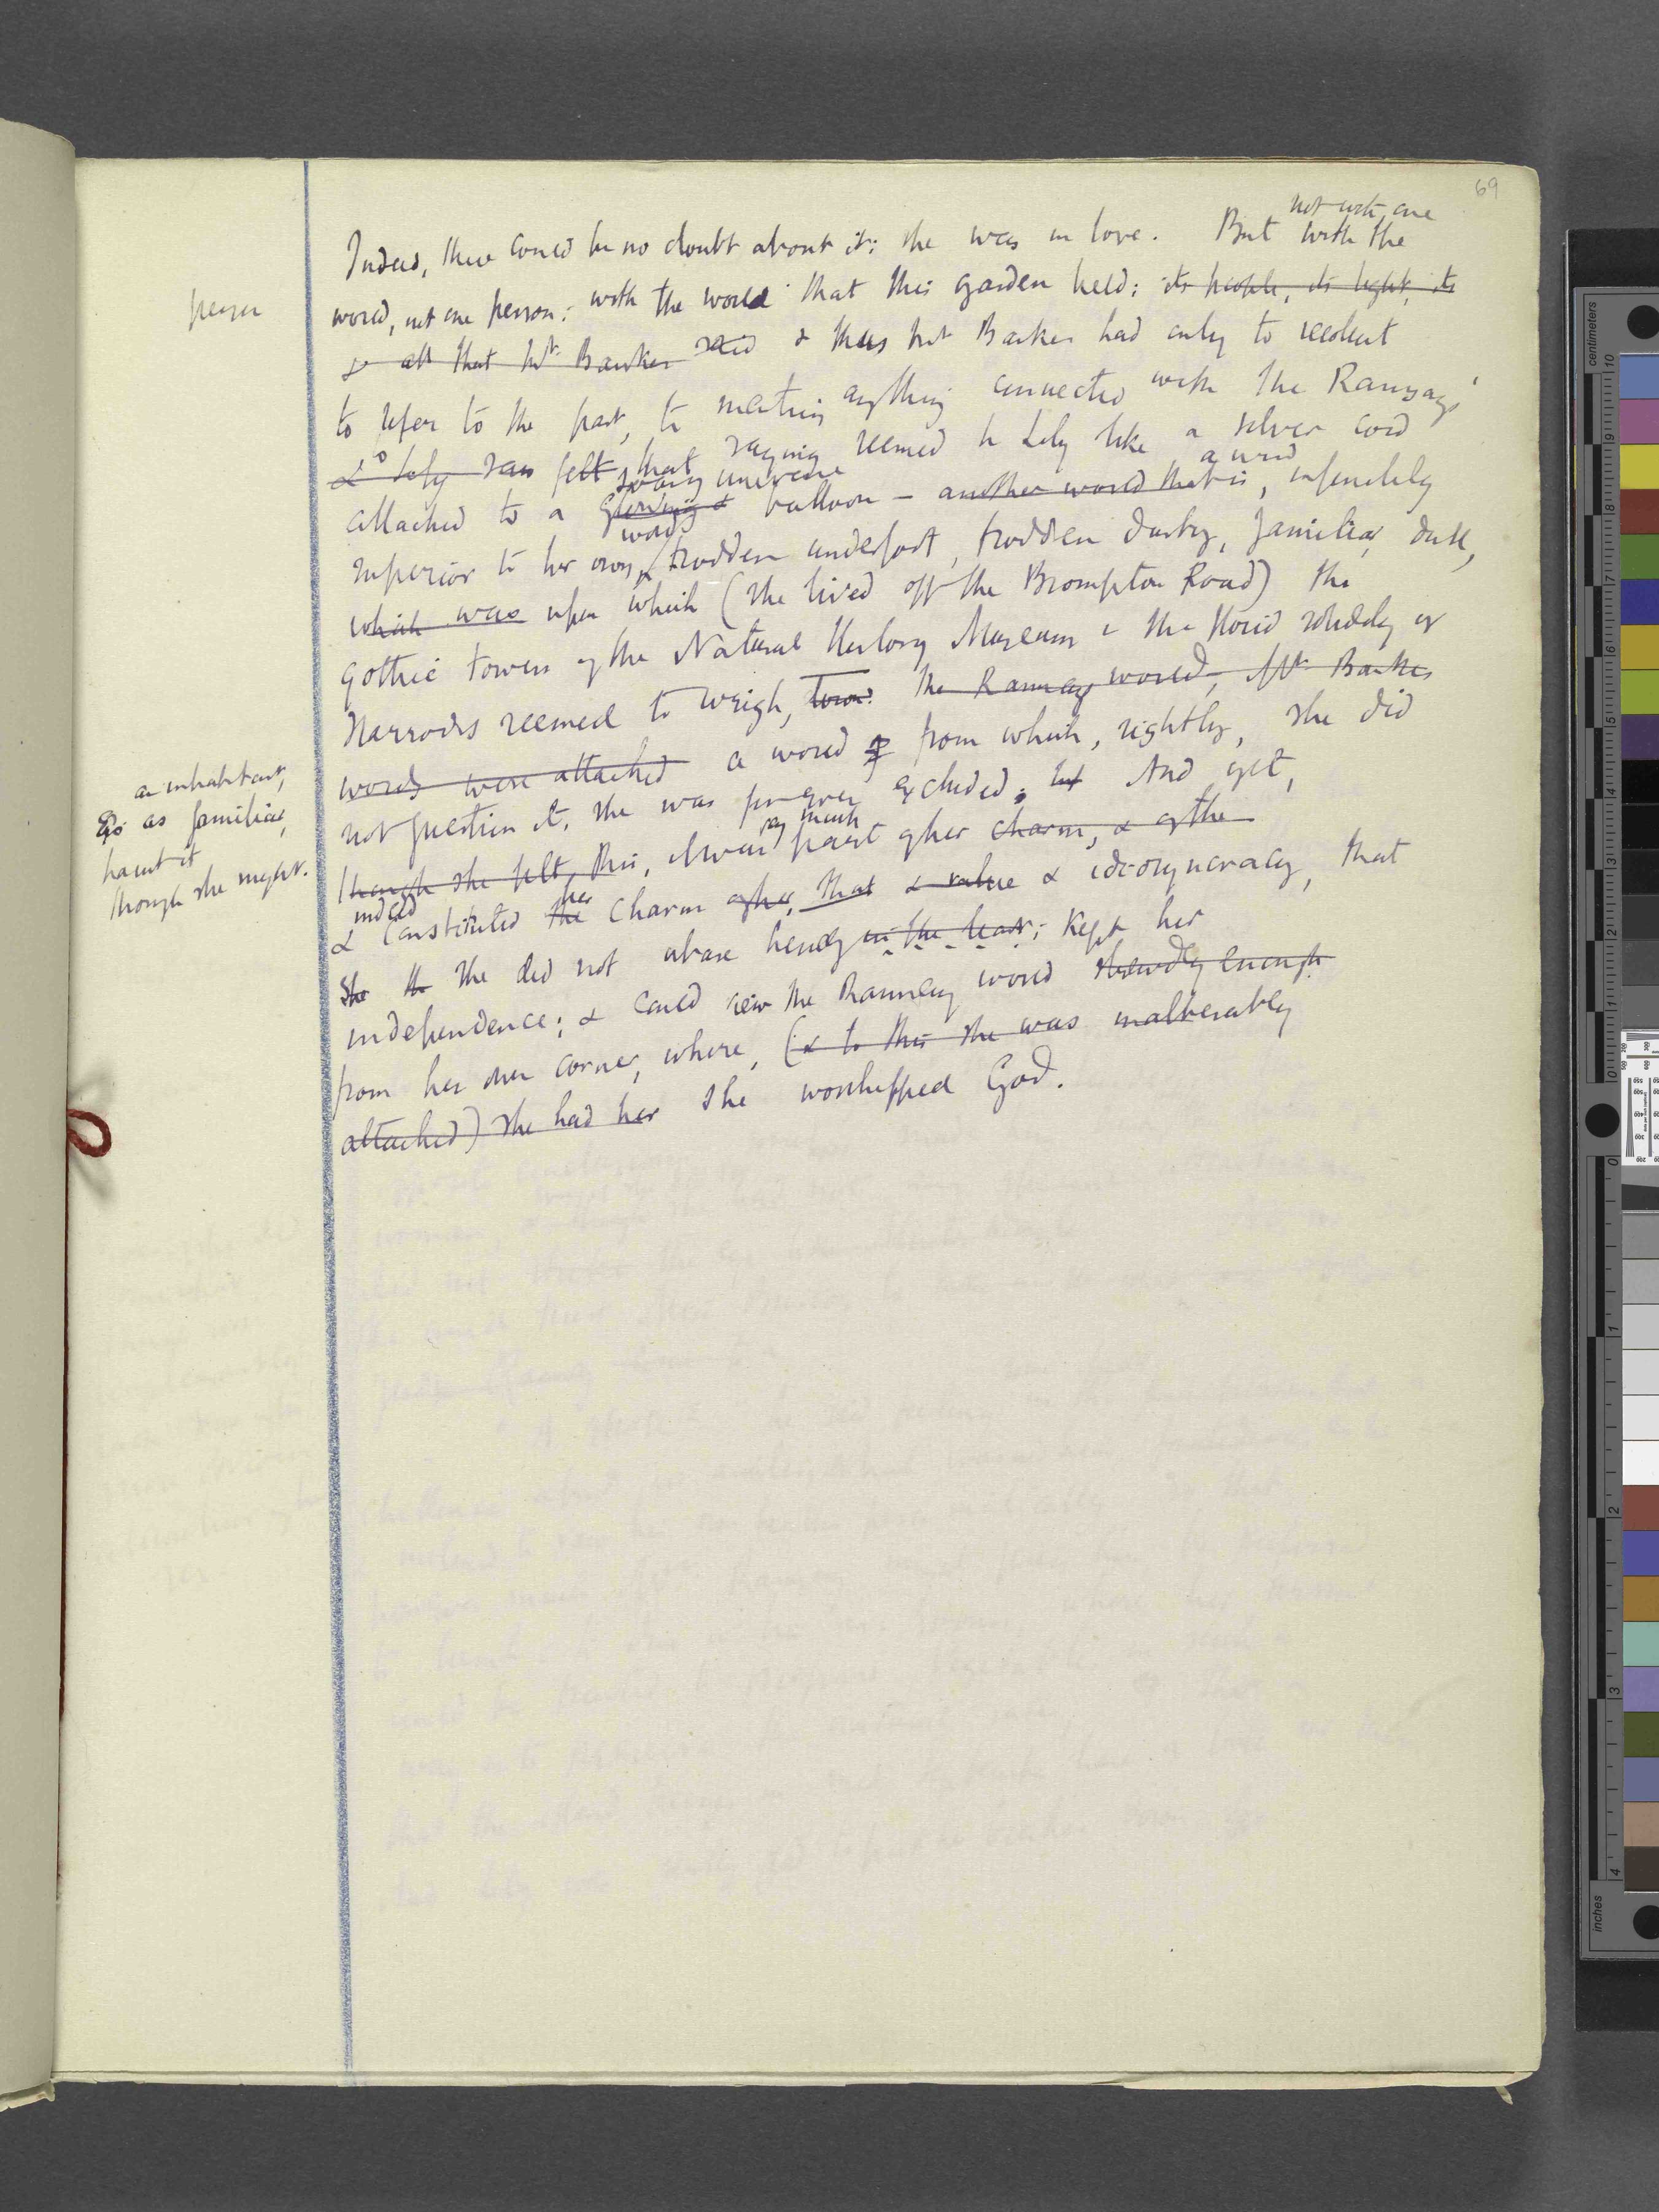 69
not with one
Indeed, there could be no doubt about it: she was in love. But with the
person
world, not one person: with the world that this garden held: its people, its light, its
& all that Mr Bankes said & thus Mr Bankes had only to recollect
to refer to the past, to mention anything connected with the Ramsays'
& so Lily saw felt that saying seemed to Lily like a silver cord
swaying a world
attached to a glowing & balloon – another world that is, infinitely
world
superior to her own, trodden underfoot, trodden dusty, familiar, dull,
which was upon which (she lived off the Brompton Road) the
Gothic towers of the Natural History Museum & the solidity of
Harrods seemed to weigh, the Ramsay world, Mr Bankes
words were attached a world from which, rightly, she did
an inhabitant,
as familiar,
haunt it
though she might.
not question it, she was for ever excluded; but And yet,
though she felt this, it was part of her charm, & of the
indeed her
& constituted the charm of her, that & value & idiosyncracy, that
She she did not abase herself in the least; kept her
independence; & could view the Ramsay world shrewdly enough
from her own corner, where, (& to this she was unalterably
attached) she had her she worshipped God.